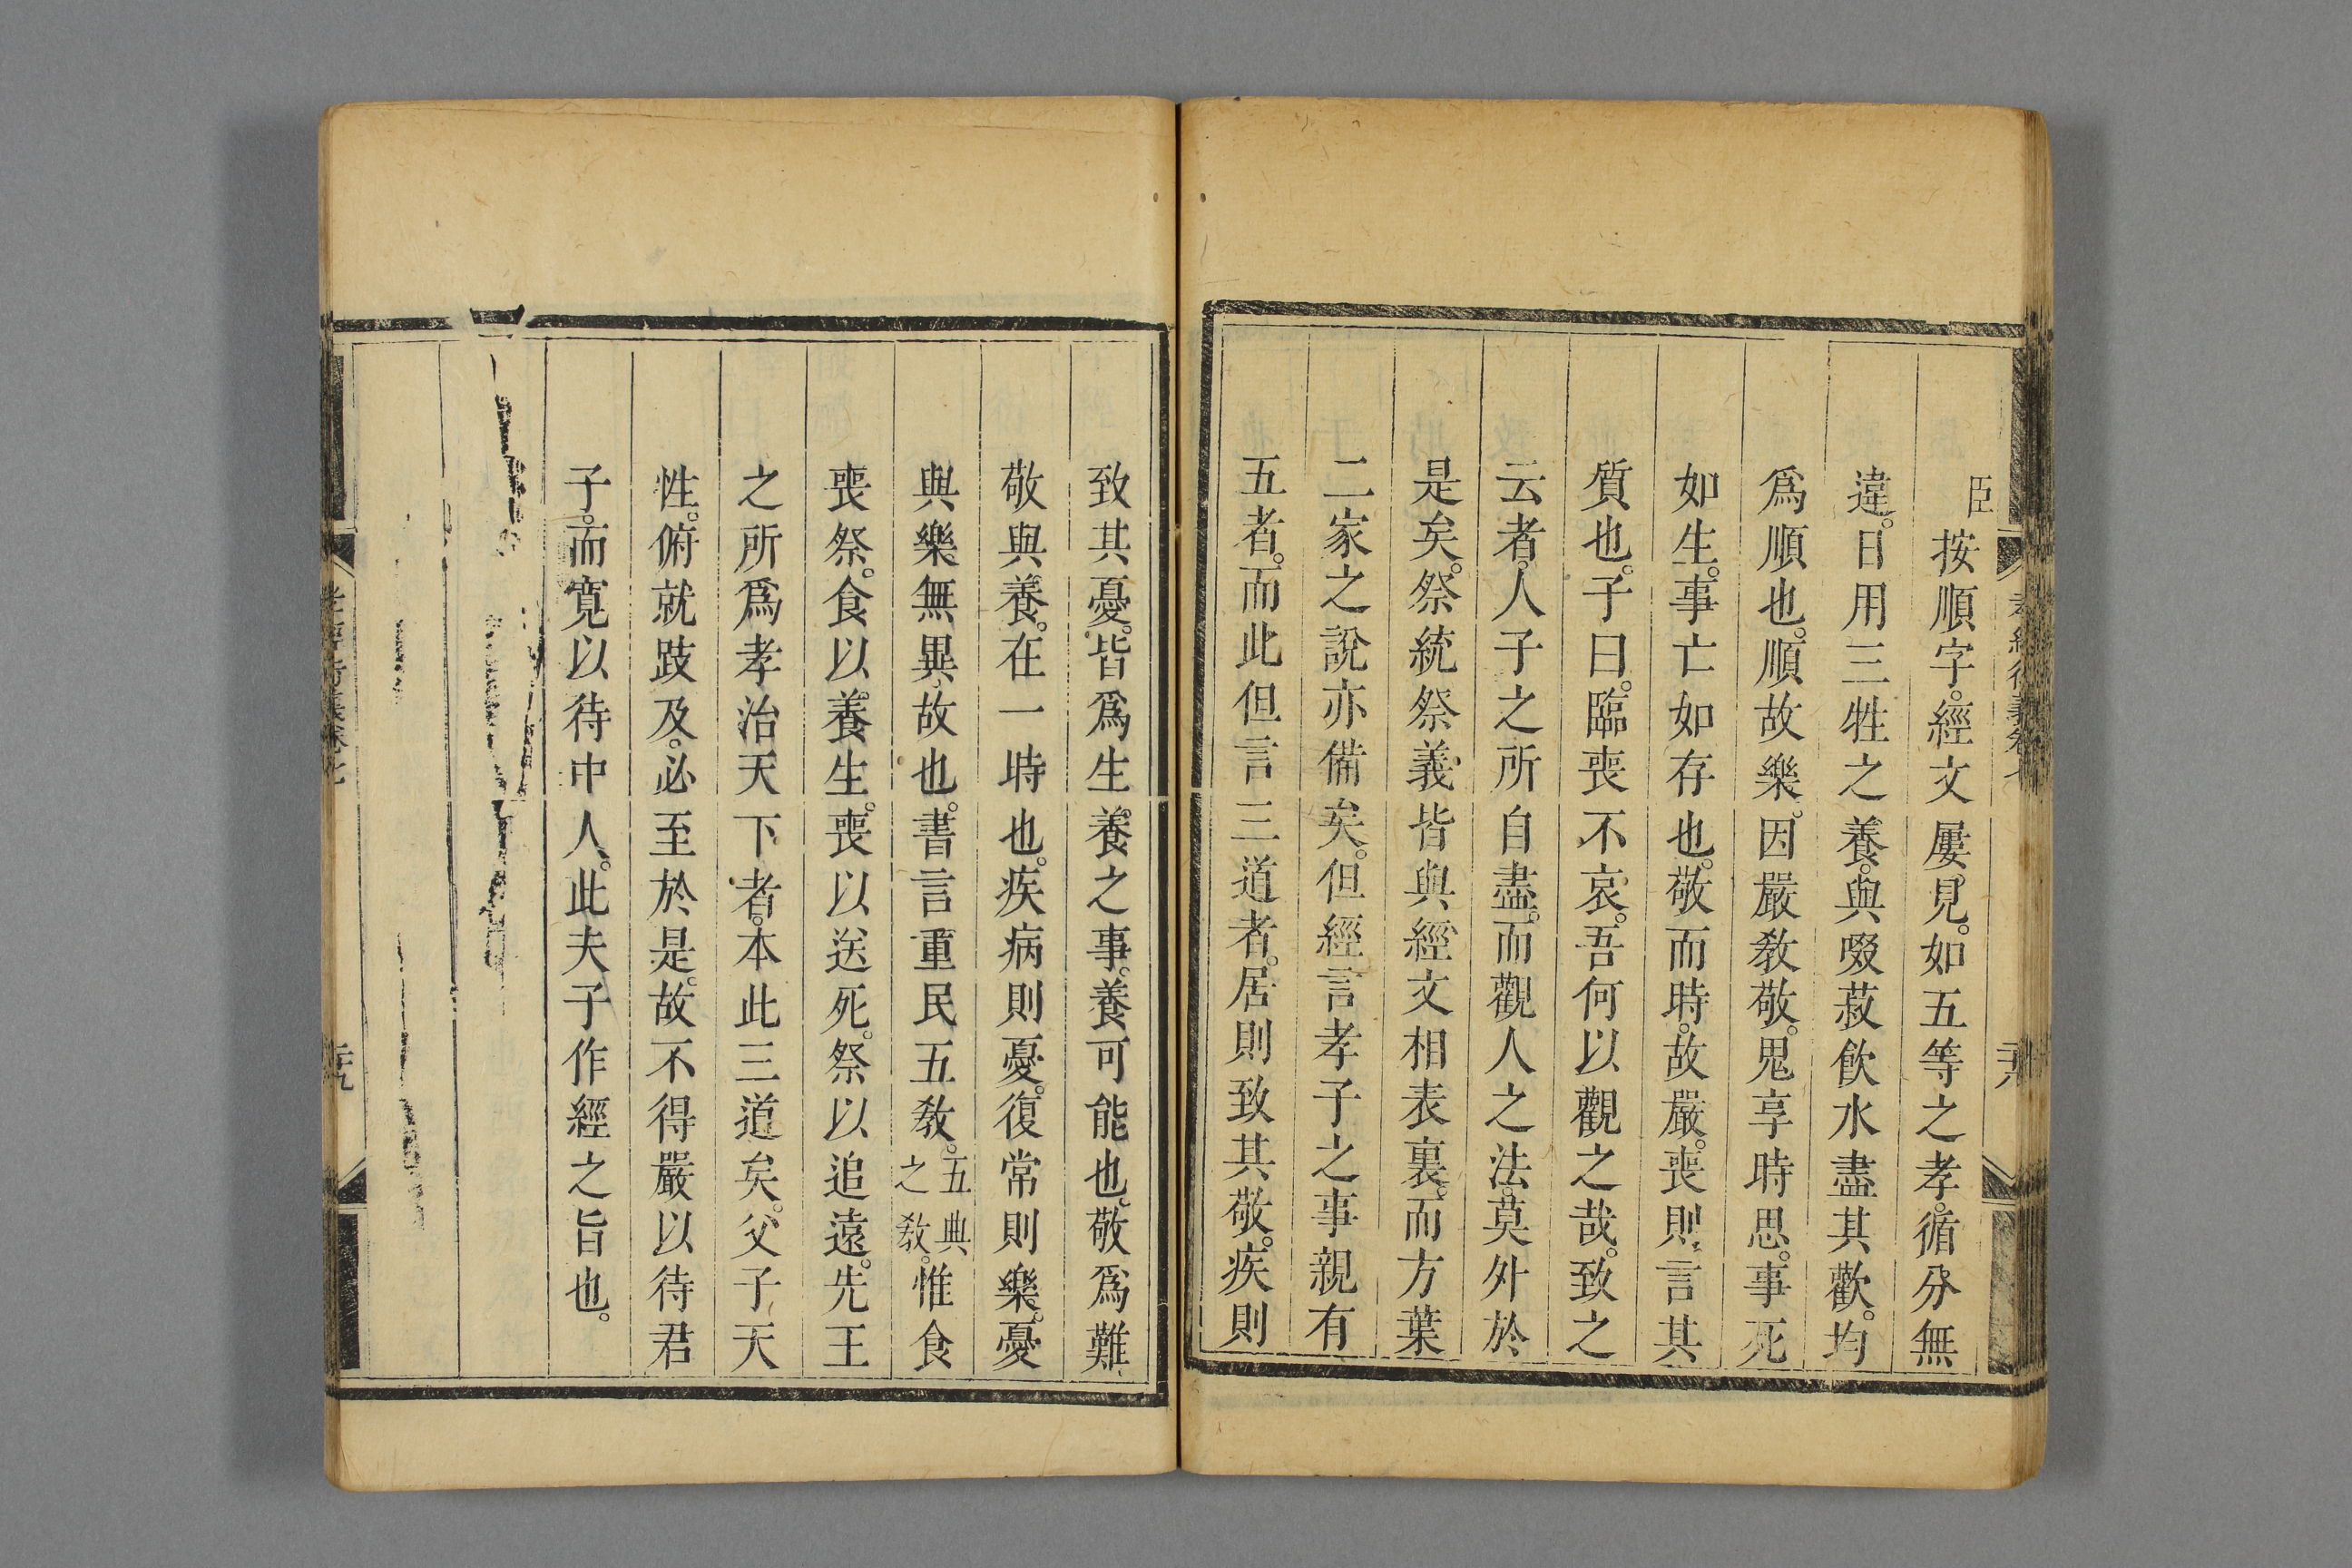 臣按順字。經文屢見。如五等之孝。循分無
違。日用三牲之養。與啜菽飮水盡其歡。均
爲順也。順故樂。因嚴敎敬。鬼享時思。事死
如生。事亡如存也。敬而時。故嚴。喪則言其
質也。子曰。臨喪不哀。吾何以觀之哉。致之
云者。人子之所自盡。而觀人之法。莫外於
是矣。祭統祭義皆與經文相表裏。而方葉
二家之說亦備矣。但經言孝子之事親有
五者。而此但言三道者。居則致其敬。疾則
致其憂。皆爲生養之事。養可能也。敬爲難
敬與養。在一時也。疾病則憂。復常則樂。憂
與樂無異故也。書言重民五敎。五典之敎。惟食
喪祭。食以養生。喪以送死。祭以追遠。先王
之所爲孝治天下者。本此三道矣。父子天
性。俯就跂及。必至於是。故不得嚴以待君
子。而寬以待中人。此夫子作經之旨也。